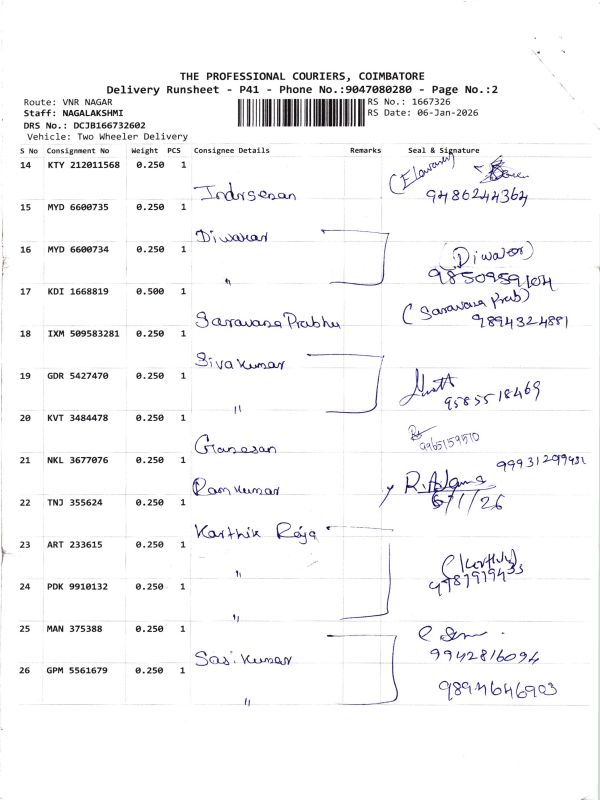 THE PROFESSIONAL COURIERS, COIMBATORE
Delivery Runsheet - P41 - Phone No.:9047080280 - Page No.:2
Route: VNR NAGAR RS No.: 1667326
Staff: NAGALAKSHMI RS Date: 06-Jan-2026
DRS No.: DCJB166732602
Vehicle: Two Wheeler Delivery
S No Consignment No Weight PCS Consignee Details Remarks Seal & Signature
14 KTY 212011568 0.250 1
Indrsesan 9486244364
15 MYD 6600735 0.250 1
Diwakar
16 MYD 6600734 0.250 1 (Diwakar)
"
17 KDI 1668819 0.500 1
Saravana Prabhu 9894324881
18 IXM 509583281 0.250 1
Sivakumar
19 GDR 5427470 0.250 1
" 9585518469
20 KVT 3484478 0.250 1
Ganesan 9965159510
21 NKL 3677076 0.250 1
Ramkumar 6/1/26
22 TNJ 355624 0.250 1
Karthik Raja
23 ART 233615 0.250 1
"
24 PDK 9910132 0.250 1
"
25 MAN 375388 0.250 1
Sasikumar 9942816094
26 GPM 5561679 0.250 1
"